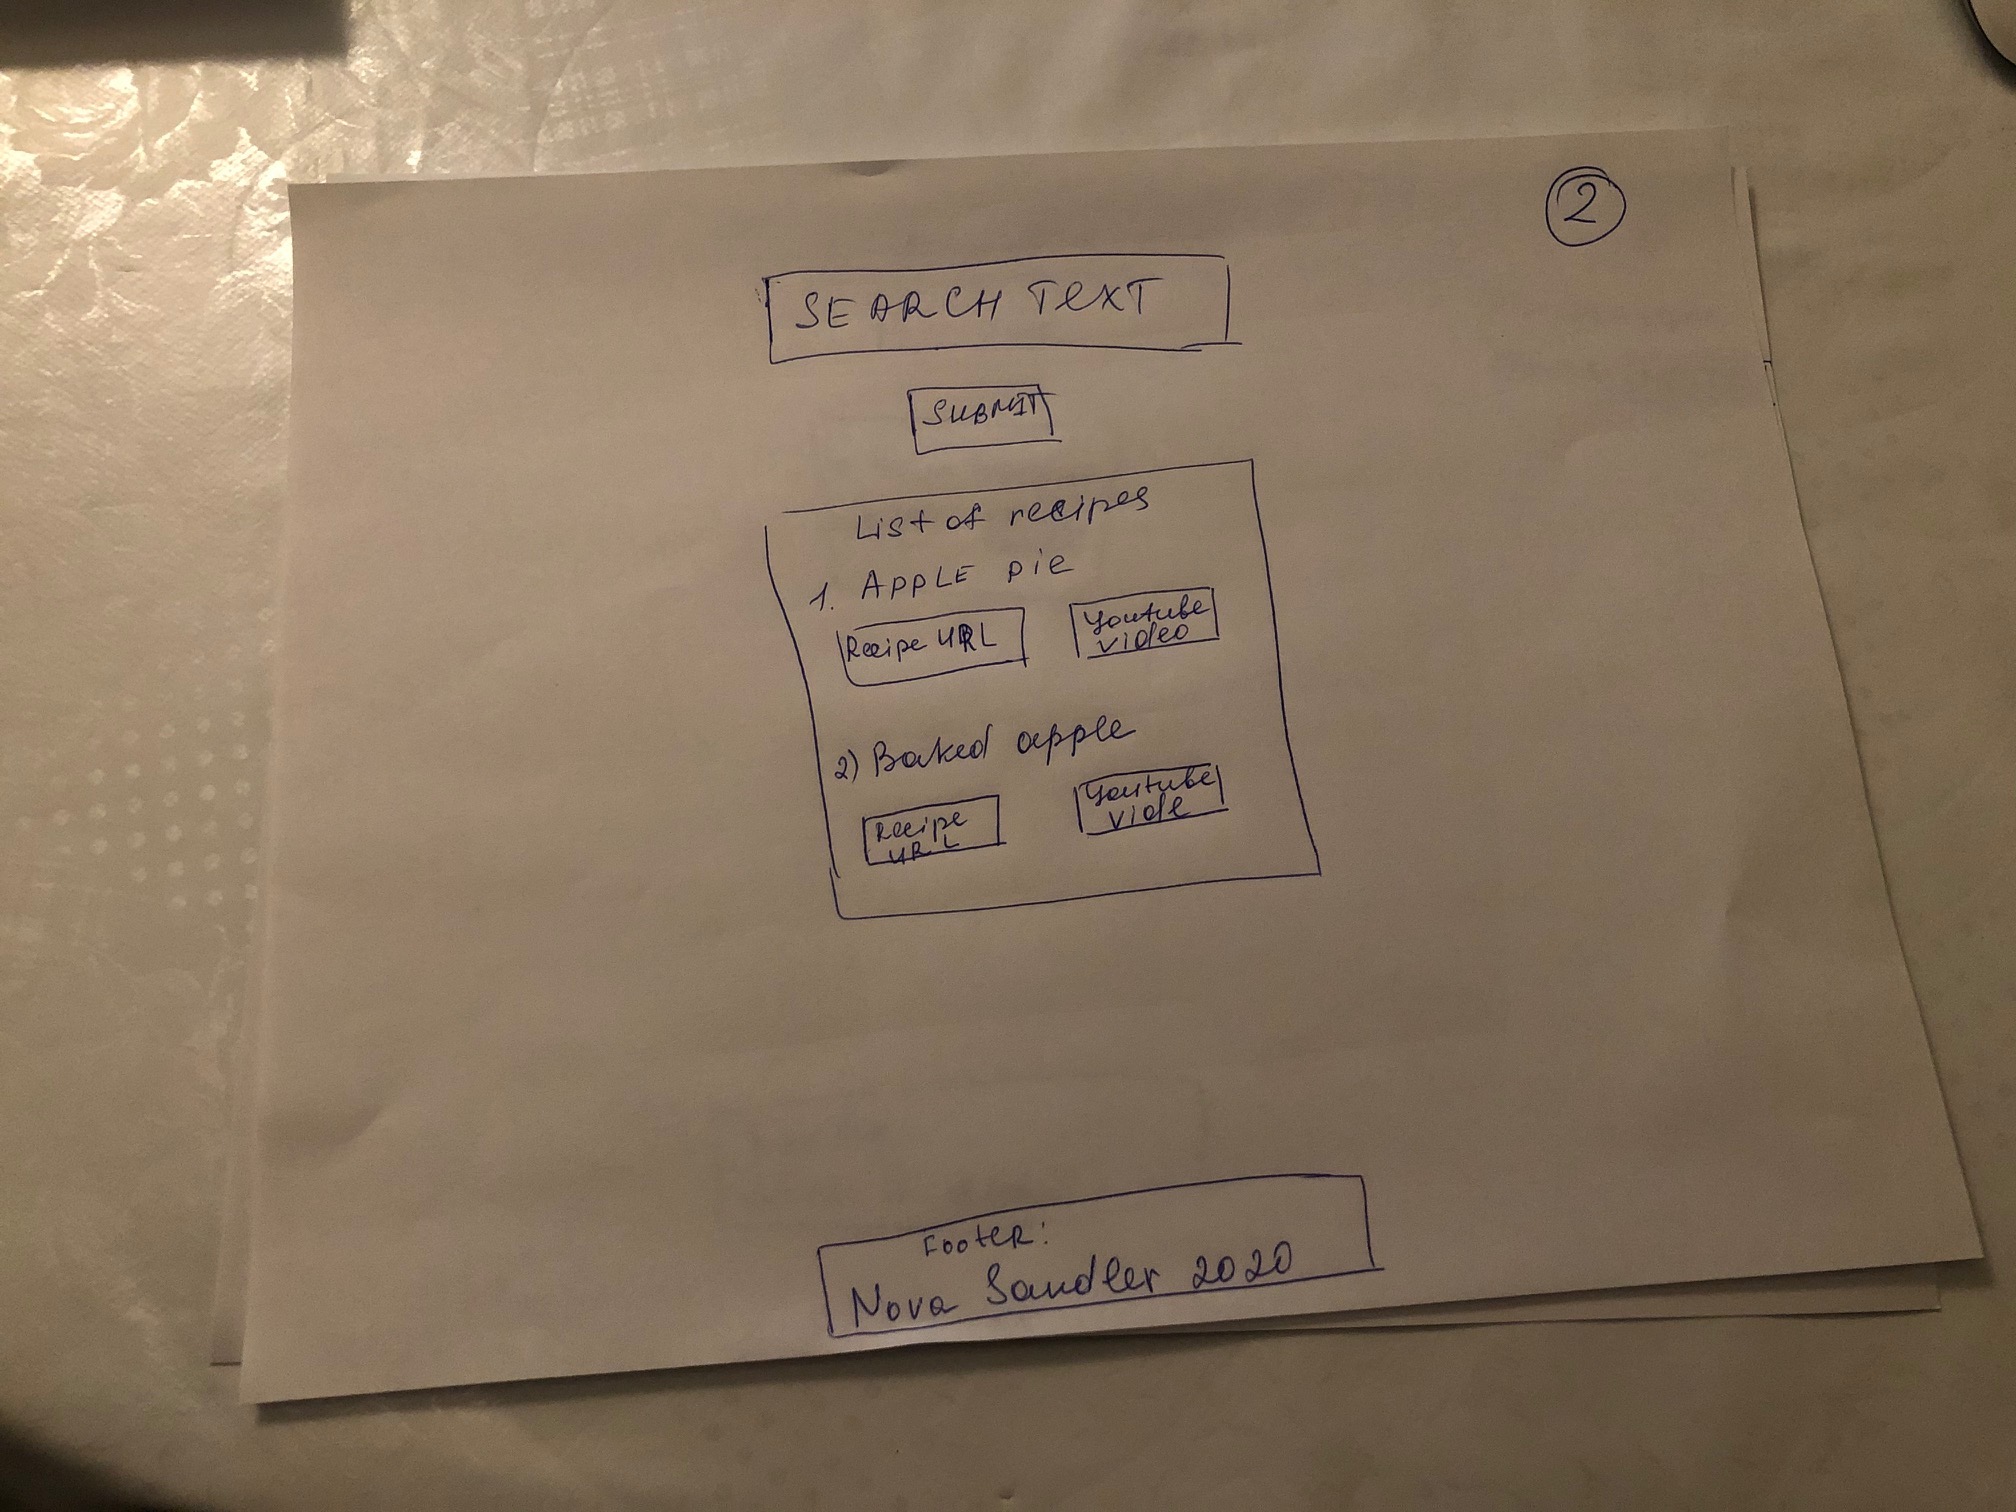 2
SEARCH TEXT
SUBMIT
List of recipes
1. APPLE pie
Recipe URL
Youtube
video
2) Baked apple
Recipe
URL
Youtube
vide
Footer:
Nova Sandler 2020